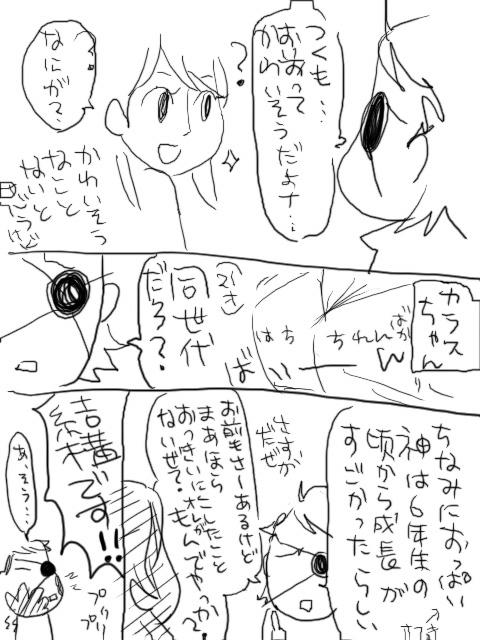 つくも…
おまえって
かわいそうだよナ…
？
なにが？
かわいそう
なこと
ないと
カラス
ちゃん
ばか
ちれんん
はち
ばいーん
同世代
だろ？
ちなみにおっぱい
神は6年生の
頃から成長が
すごかったらしい
さすが
だぜ
お前もさーあるけど
まあほら
おっきいにこしたこと
ないぜ？オレが
もんでやっか？
結構です!!
プリプリ
あ、そう…